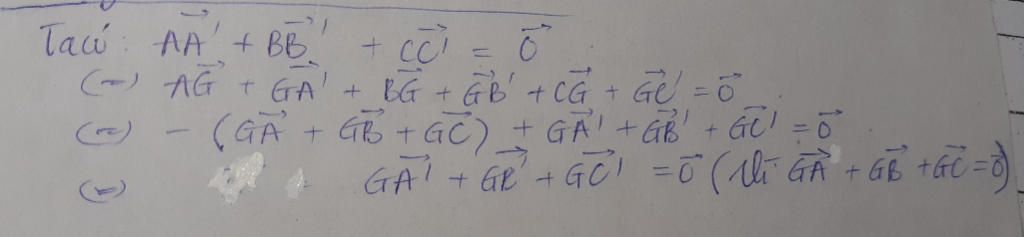 Ta có: \overrightarrow{AA'} + \overrightarrow{BB'} + \overrightarrow{CC'} = \overrightarrow{0}
(=) \overrightarrow{AG} + \overrightarrow{GA'} + \overrightarrow{BG} + \overrightarrow{GB'} + \overrightarrow{CG} + \overrightarrow{GC'} = \overrightarrow{0}
(=) - (\overrightarrow{GA} + \overrightarrow{GB} + \overrightarrow{GC}) + \overrightarrow{GA'} + \overrightarrow{GB'} + \overrightarrow{GC'} = \overrightarrow{0}
(=) \overrightarrow{GA'} + \overrightarrow{GB'} + \overrightarrow{GC'} = \overrightarrow{0} (Vì \overrightarrow{GA} + \overrightarrow{GB} + \overrightarrow{GC} = \overrightarrow{0})